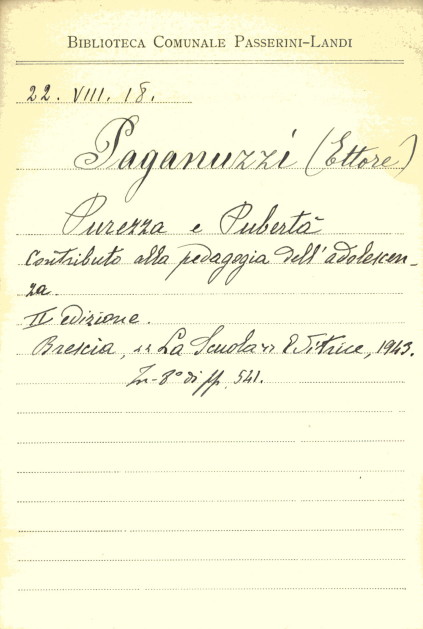 BIBLIOTECA COMUNALE PASSERINI-LANDI
22. VIII. 18.
Paganuzzi (Ettore)
Purezza e Pubertà
Contributo alla pedagogia dell'adolescen-
za.
II edizione.
Brescia, «La Scuola» Editrice, 1943.
In-8° di pp. 541.